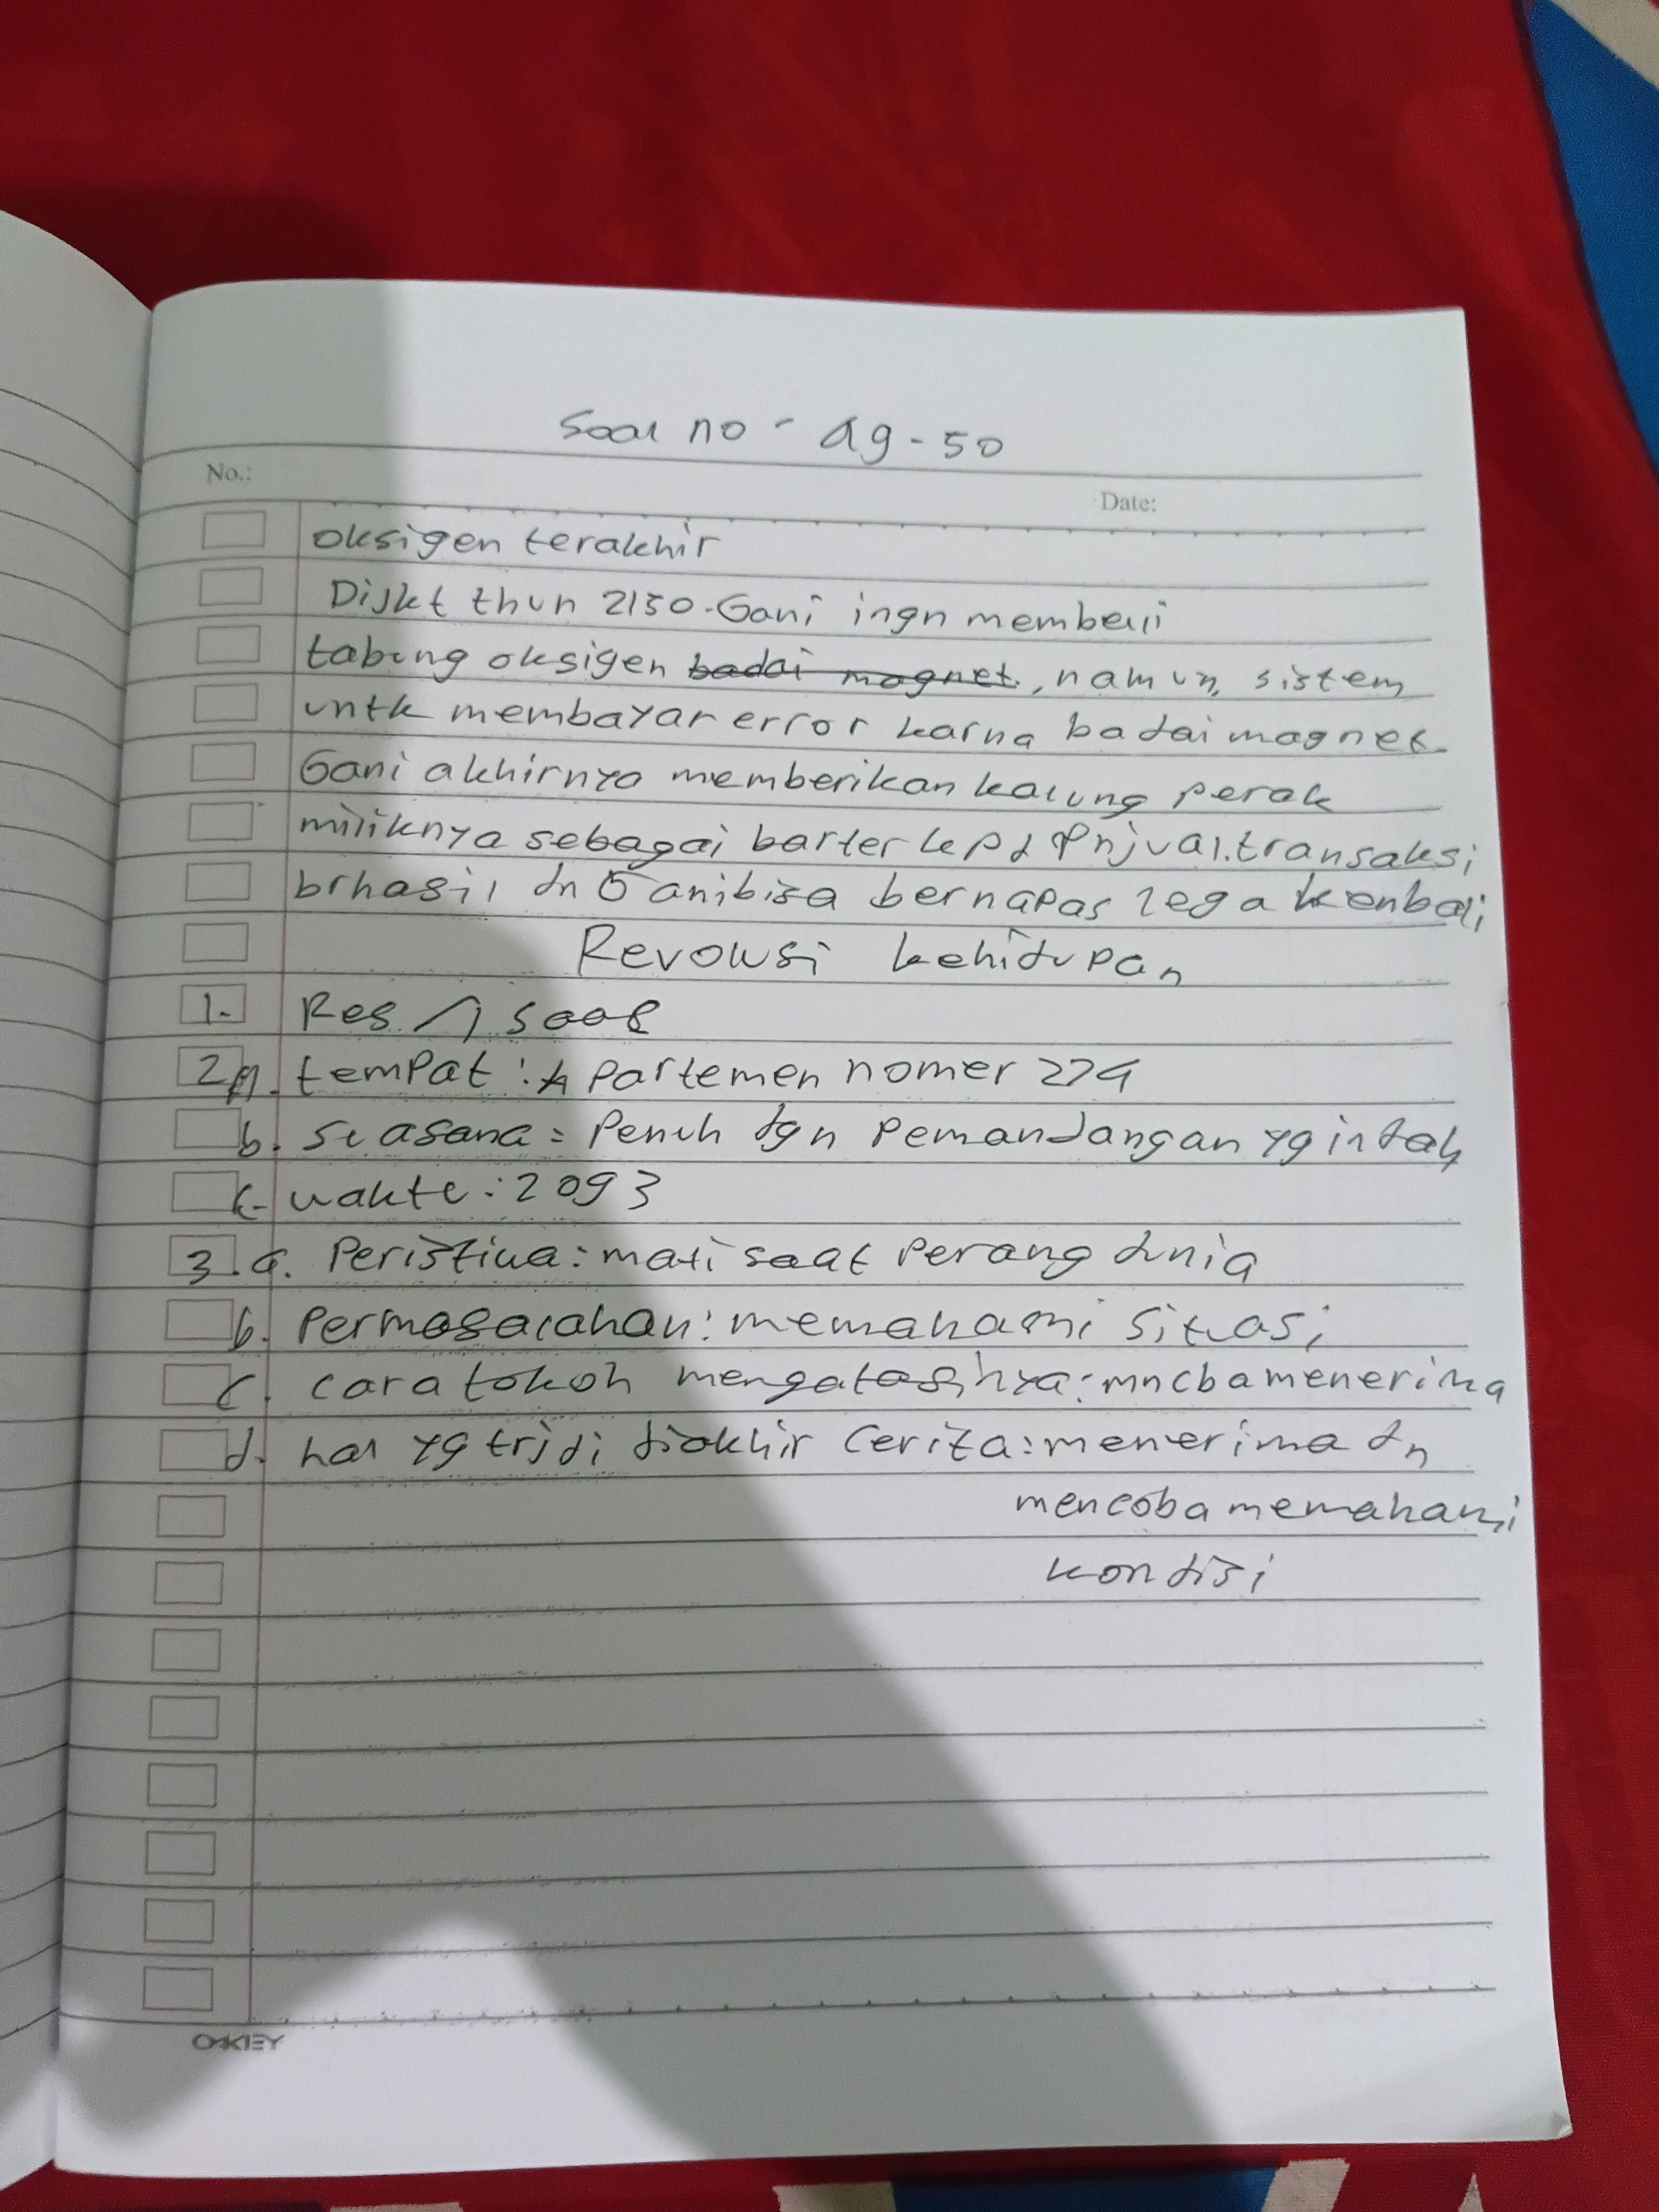 Soal no - 49 - 50
No.:
Date:
oksigen terakhir
Dijkt thun 2150. Gani ingn membeli
tabung oksigen badai magnet, namun, sistem
untk membayar error karna badai magnet
Gani akhirnya memberikan kalung perak
miliknya sebagai barter kepd pnjual. transaksi
brhasil dn Ganibisa bernapas lega kembali
Revolusi kehidupan
1. Res / soal
2 A. tempat : Apartemen nomer 224
b. suasana = Penuh dgn Pemandangan yg indah
c. waktu : 2093
3. a. Peristiwa : mati saat Perang dunia
b. Permasalahan : memahami situasi
c. cara tokoh mengatasinya : mncba menerima
d. hal yg trjdi diakhir Cerita : menerima dn
mencoba memahami
kondisi
OAKEY